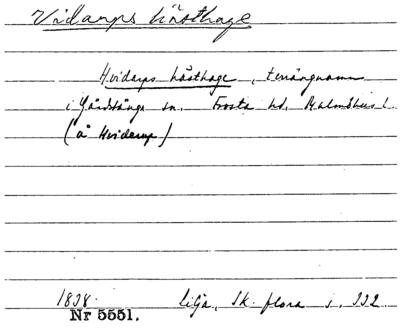 Vidarps hästhage
Hvidarps hästhage, terrängnamn
i Gårdstånga sn. Frosta hd. Malmöhus l.
(å Hviderup)
1838. Lilja, Sk. flora s. 332
Nr 5551.